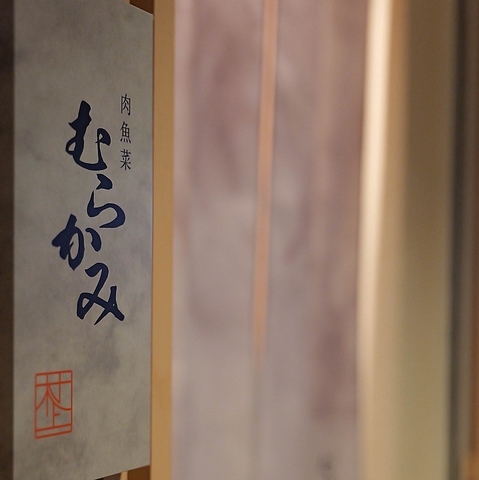 肉魚菜
むらかみ